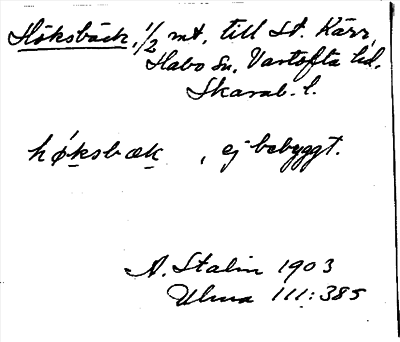 Höksbäck, 1/2 mt. till St. Kärr,
Habo sn, Vartofta hd.
Skarab. l.
høksbæk , ej bebyggt.
A. Stalin 1903
Ulma 111:385